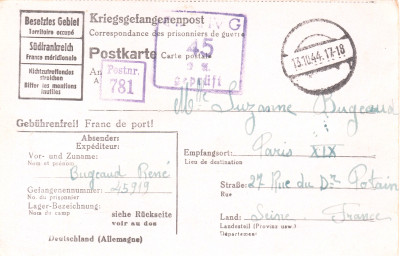 Besetztes Gebiet
Territoire occupé
Südfrankreich
France méridionale
Nichtzutreffendes streichen
Biffer les mentions inutiles
Kriegsgefangenenpost
Correspondance des prisonniers de guerre
Postkarte Carte postale
G
45
geprüft
Postnr.
781
13.10.44.17-18
An
A
Mlle Suzanne Bugeaud
Gebührenfrei! Franc de port!
Absender:
Expéditeur:
Vor- und Zuname:
Nom et prénom
Bugeaud René
Gefangenennummer: 45919
No. du prisonnier
Lager-Bezeichnung:
Nom du camp
siehe Rückseite
voir au dos
Deutschland (Allemagne)
Empfangsort: Paris XIX
Lieu de destination
Straße: 27 Rue du Dr Potain
Rue
Land: Seine. France
Landesteil (Provinz usw.)
Département